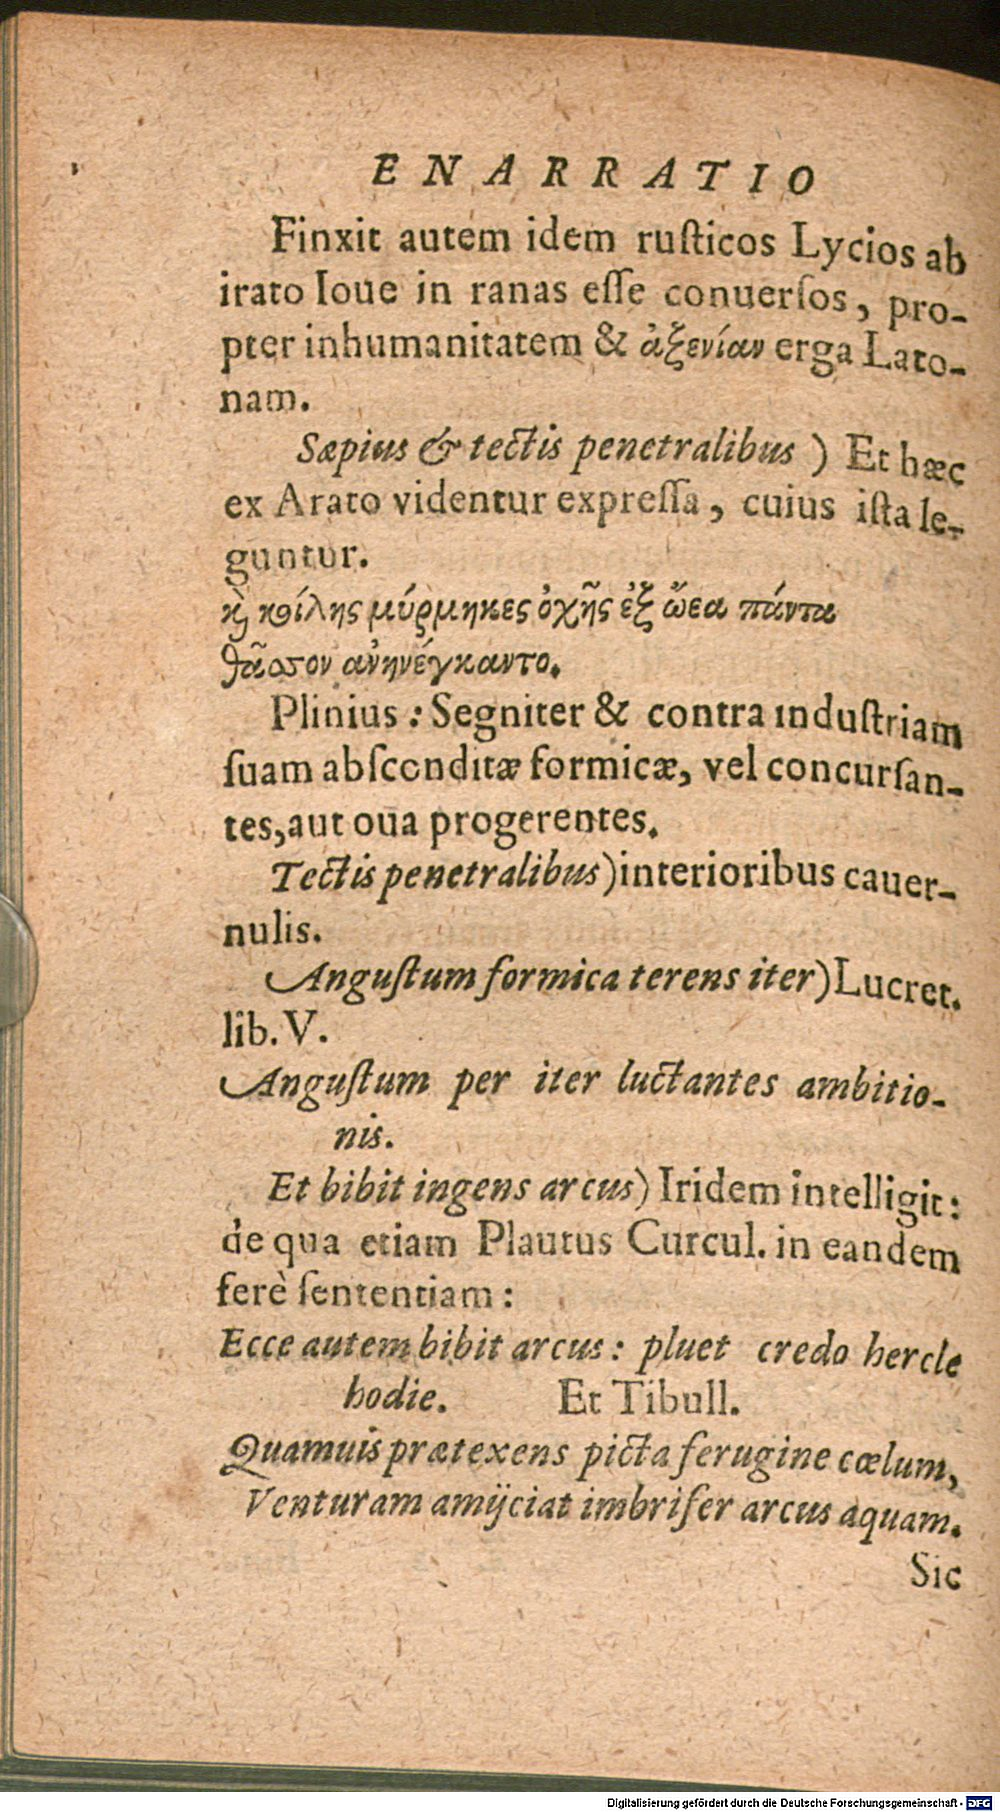 ENARRATIO
Finxit autem idem rusticos Lycios ab
irato Ioue in ranas esse conuersos, pro-
pter inhumanitatem & ἀξενίαν erga Lato-
nam.
Sæpius & tectis penetralibus) Et hæc
ex Arato videntur expressa, cuius ista le-
guntur.
καὶ κοίλης μύρμηκες ὀχῆς ἐξ ὤεα πάντα
θᾶσσον ἀνηνέγκαντο.
Plinius: Segniter & contra industriam
suam absconditæ formicæ, vel concursan-
tes, aut oua progerentes.
Tectis penetralibus) interioribus cauer-
nulis.
Angustum formica terens iter) Lucret.
lib. V.
Angustum per iter luctantes ambitio-
nis.
Et bibit ingens arcus) Iridem intelligit:
de qua etiam Plautus Curcul. in eandem
ferè sententiam:
Ecce autem bibit arcus: pluet credo hercle
hodie. Et Tibull.
Quamuis prætexens picta ferugine cœlum,
Venturam amijciat imbrifer arcus aquam.
Sic
Digitalisierung gefördert durch die Deutsche Forschungsgemeinschaft - DFG